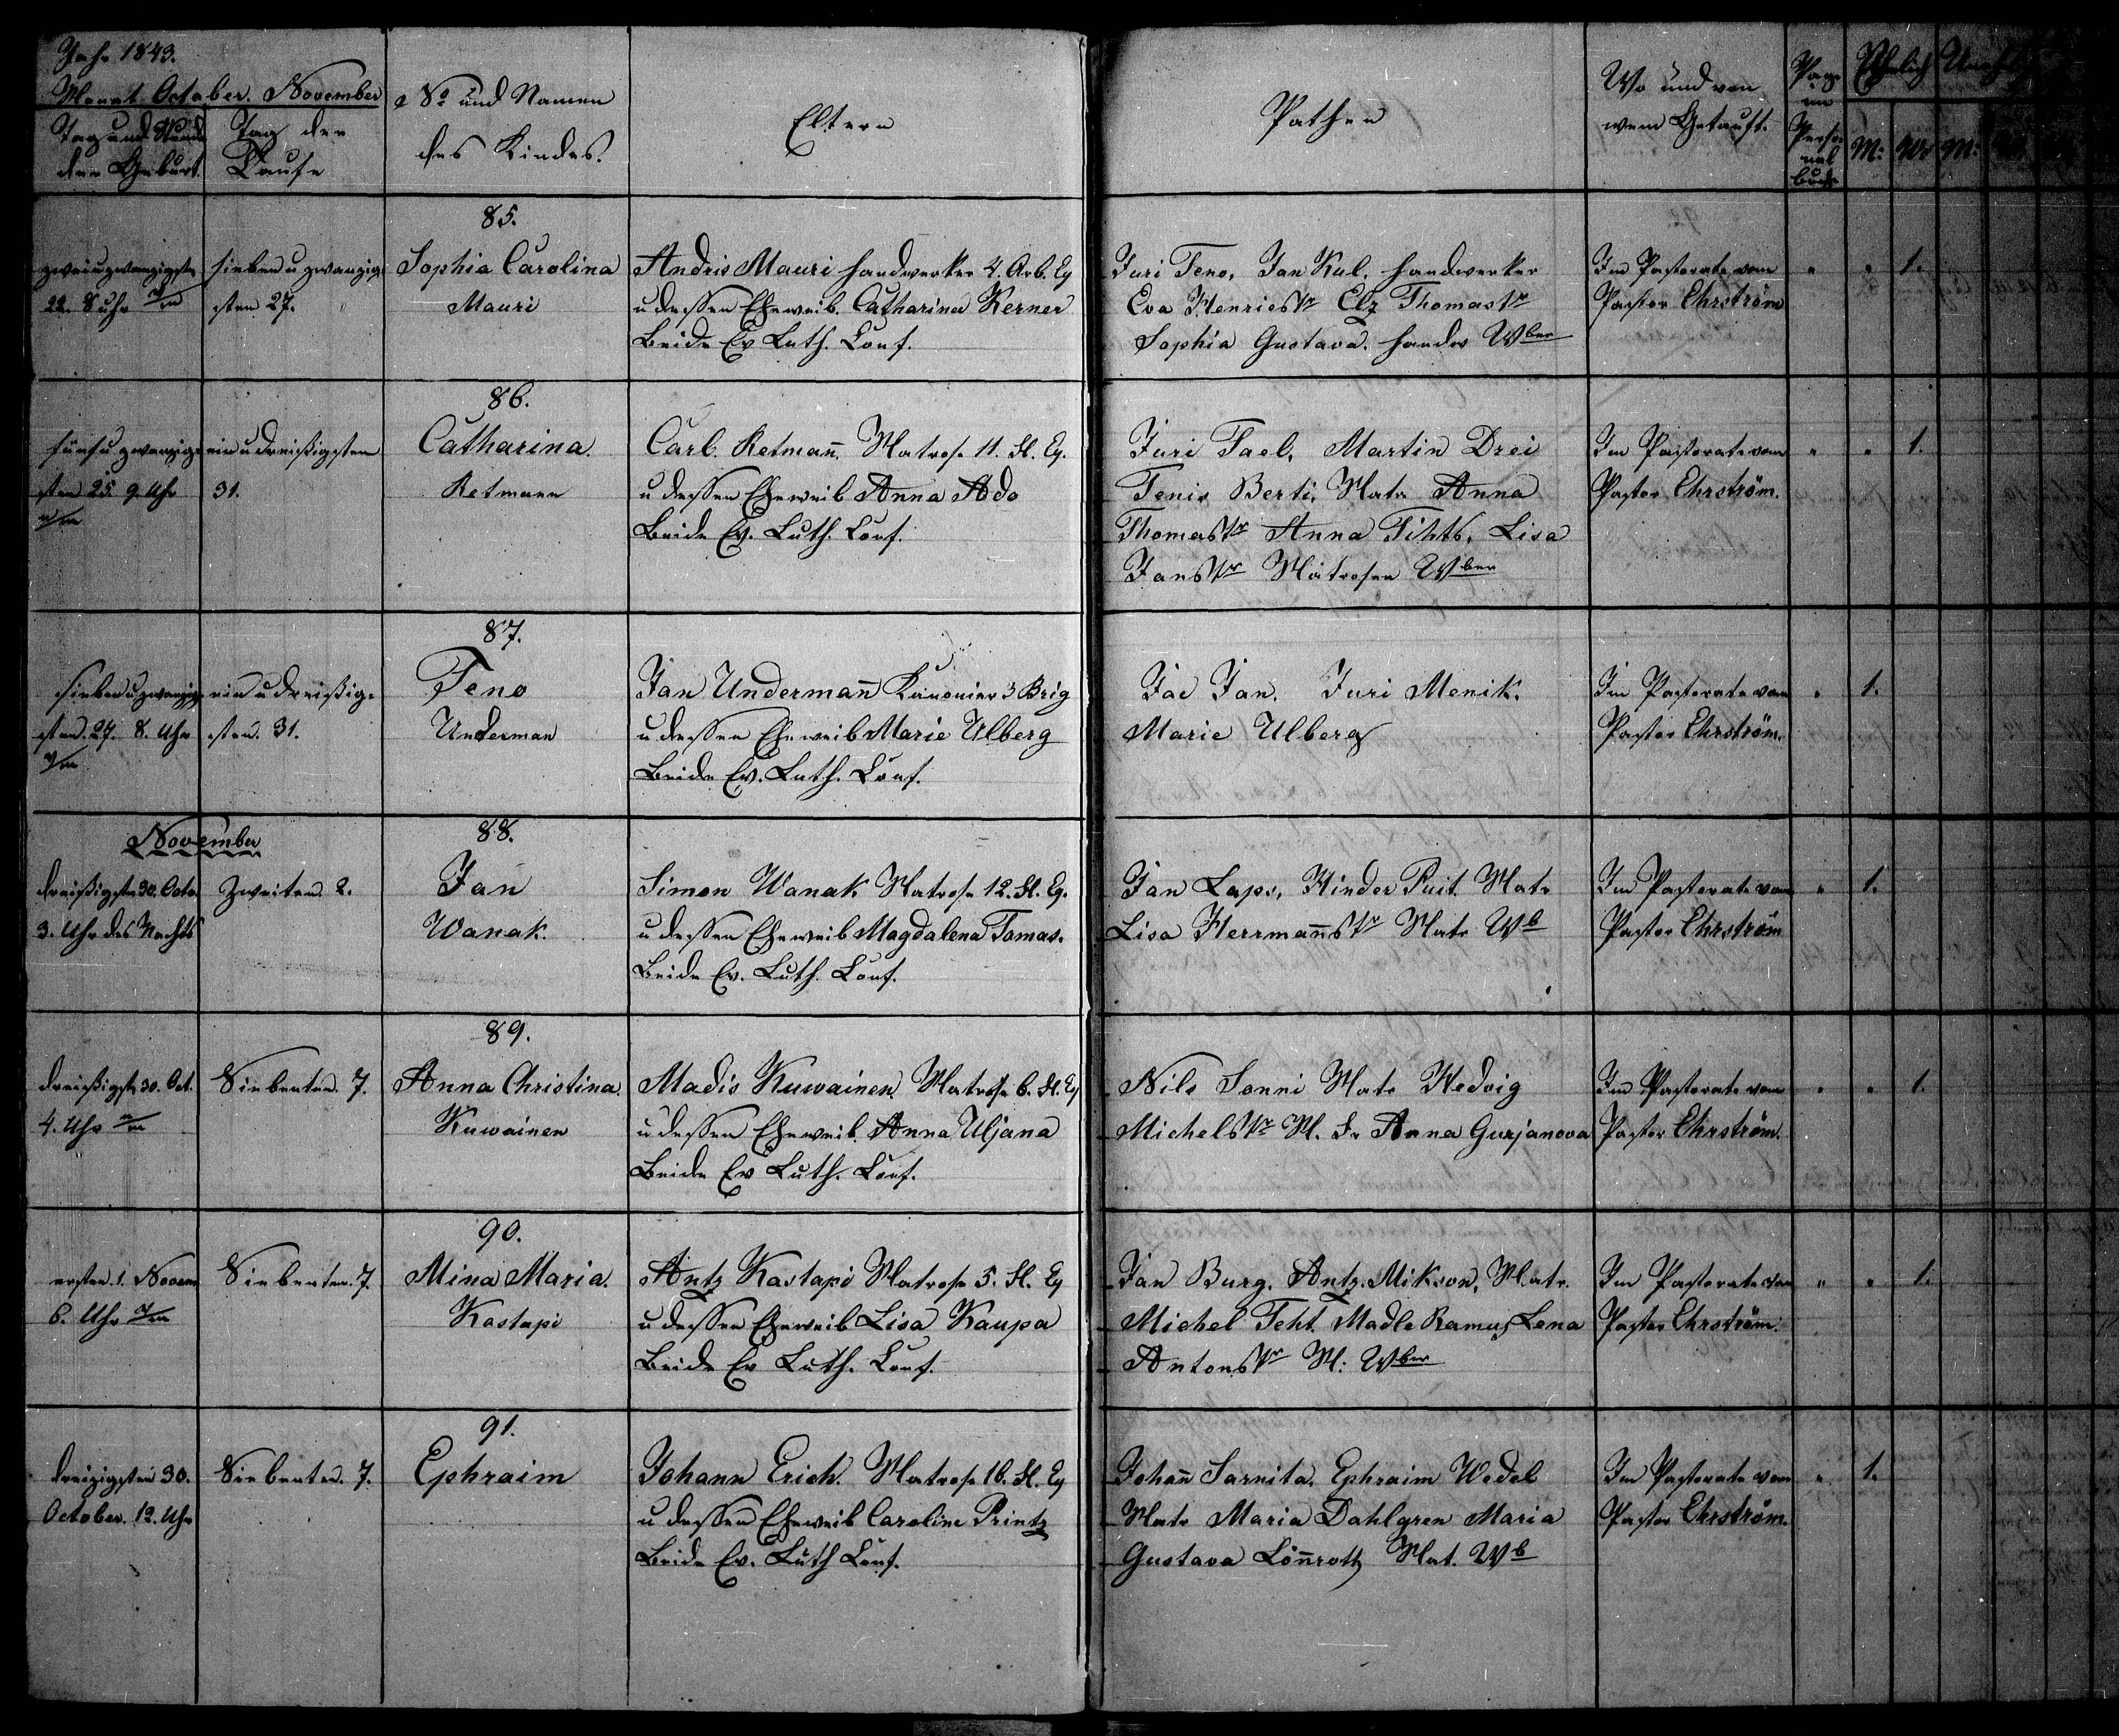 Jahr 1843.
Monat October. November
Tag und Stunde der Geburt.
Tag der Taufe
No und Namen des Kindes.
Eltern
Pathen
Wo und von wem Getauft.
Pag. im Personal buch
Ehelich
M: W
M:
85.
zweiuzwanzigste 22. 8 uhr
siebenuzwanzigsten 27.
Sophia Carolina
Mauri
Andris Mauri Handwerker 4. Arb. Eq
u dessen Eheweib. Catharina Kerner
Beide Ev Luth. Conf.
Juri Teno, Jan Kul, Handwerker
Eva Henriestr Elz Thomastr
Sophia Gustava. Handw Wber
Im Pastorate vom
Pastor Ehrström
" " 1.
86.
fünfuzwanzigsten 25. 9. Uhr
einudreißigsten
31.
Catharina
Retmann
Carl. Retman̄. Matrose 11. Fl. Eq.
u dessen Eheweib Anna Ado
Beide Ev. Luth. Conf.
Juri Tael, Martin Drei
Tenis Berti, Matr Anna
Thomastr Anna Tihts, Lisa
Janstr Matrosen Wber
Im Pastorate vom
Pastor Ehrström.
" " 1.
87.
siebenuzwanzigsten. 27. 8. Uhr
einudreißigsten. 31.
Teno
Underman
Jan Underman̄ Kanonier 3 Brig
u dessen Eheweib Marie Ulberg
Beide Ev. Luth. Conf.
Jac Jan. Juri Menik.
Marie Ulberg
Im Pastorate vom
Pastor Ehrström.
" 1.
November
88.
dreißigste 30. Octo
3. Uhr des Nachts
Zweiten. 2.
Jan
Wanak.
Simon Wanak Matrose 12. Fl. Eq.
u dessen Eheweib Magdalena Tomas.
Beide Ev. Luth. Conf.
Jan Laps, Hinder Puit Matr
Lisa Herrman̄str Matr Wb
Im Pastorate vom
Pastor Ehrström
" 1.
89.
dreißigste 30. Oct.
4. Uhr
Siebenten. 7.
Anna Christina.
Kuwainen
Madis Kuwainen. Matrose 6. Fl. Eq
u dessen Eheweib. Anna Uljana
Beide Ev Luth. Conf.
Nils Sonni Matr Hedvig
Michelstr M. Fr Anna Gurjanova
Im Pastorate vom
Pastor Ehrström.
" " 1.
90.
ersten. 1. Novem
6. Uhr
Siebenten. 7.
Mina Maria.
Kastapi
Antz Kastapi Matrose 5. Fl. Eq
u dessen Eheweib Lisa Kaupa
Beide Ev Luth. Conf.
Jan Burg. Antz. Mikson, Matr.
Michel Teht. Madle Ramus, Lena
Antonstr M: Wber
Im Pastorate vom
Pastor Ehrström.
" " 1.
91.
dreizigsten 30.
October. 12. Uhr
Siebenten. 7.
Ephraim
Johann Erich. Matrose 16. Fl. Eq
u dessen Eheweib Caroline Printz
Beide Ev. Luth Conf.
Johan̄ Sarnita. Ephraim Wedel
Matr Maria Dahlgren Maria
Gustava Lön̄roth Mat. Wb
Im Pastorate vom
Pastor Ehrström.
" 1.